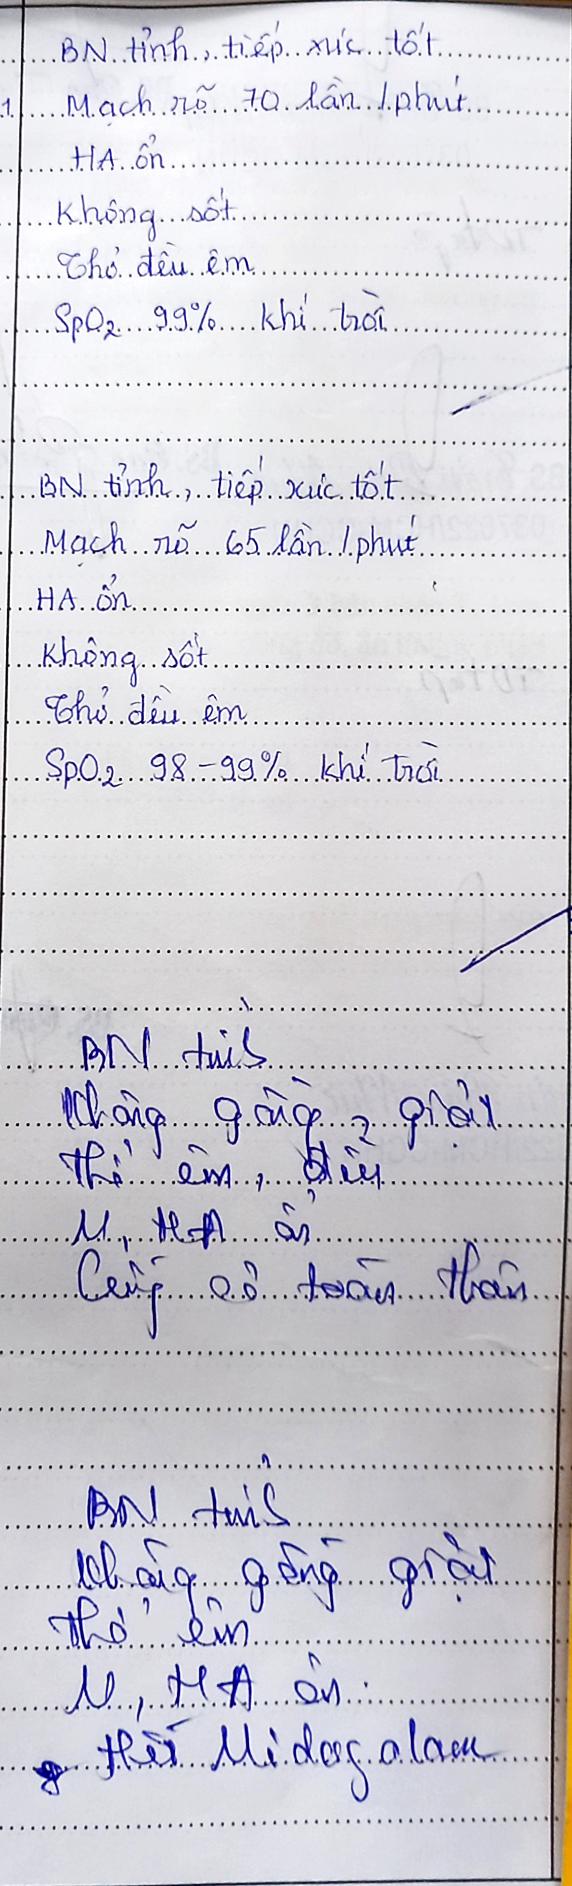 BN tỉnh, tiếp xúc tốt
1 Mạch rõ 70 lần / phút
HA ổn
Không sốt
Thở đều êm
SpO2 99% khí trời
BN tỉnh, tiếp xúc tốt
Mạch rõ 65 lần / phút
HA ổn
Không sốt
Thở đều êm
SpO2 98-99% khí trời
BN tỉnh
Không gồng, giật
Thở êm, đều
M, HA ổn
Cứng cơ toàn thân
BN tỉnh
Không gồng giật
Thở êm
M, HA ổn
Midazolam